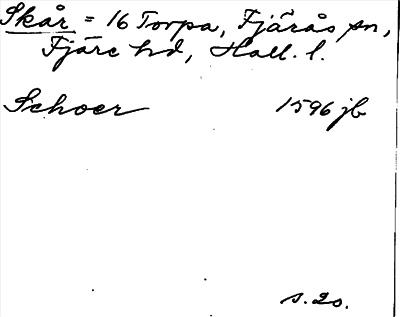 Skår = 16 Torpa, Fjärås sn,
Fjäre hd, Hall. l.
Schoer 1596 jb
s. 20.